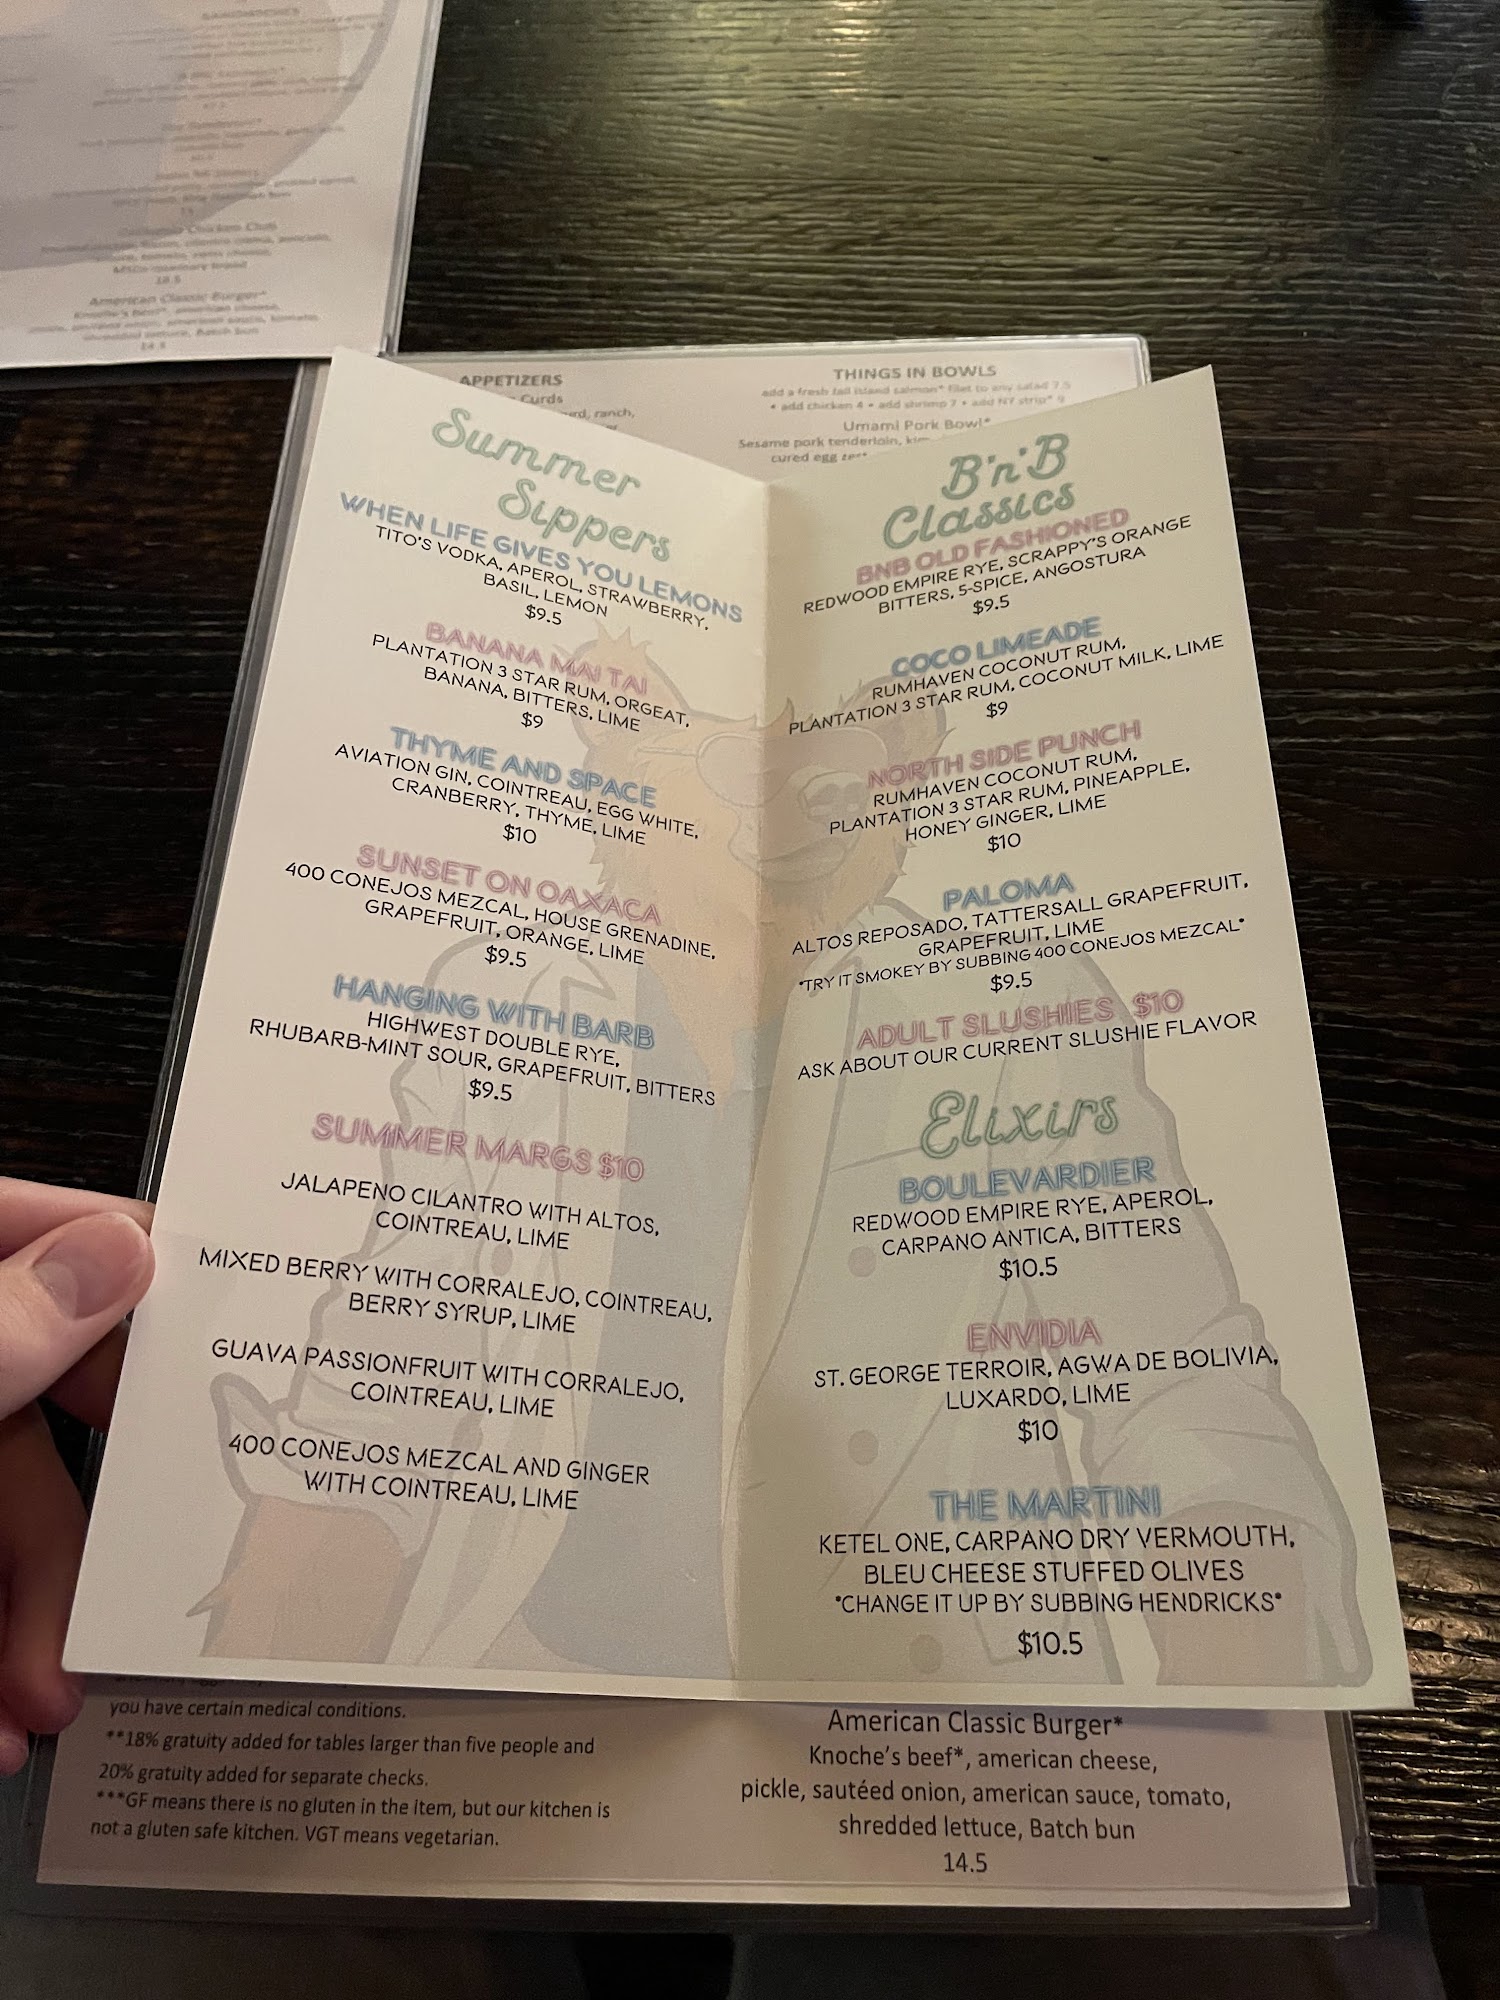 American Classic Burger*
14.5
APPETIZERS
Curds
ranch,
THINGS IN BOWLS
add a fresh fail island salmon* filet to any salad 7.5
• add chicken 4 • add shrimp 7 • add NY strip* 9
Umami Pork Bowl*
Sesame pork tenderloin,
cured egg
Summer
Sippers
WHEN LIFE GIVES YOU LEMONS
TITO'S VODKA, APEROL, STRAWBERRY,
BASIL, LEMON
$9.5
BANANA MAI TAI
PLANTATION 3 STAR RUM, ORGEAT,
BANANA, BITTERS, LIME
$9
THYME AND SPACE
AVIATION GIN, COINTREAU, EGG WHITE,
CRANBERRY, THYME, LIME
$10
SUNSET ON OAXACA
400 CONEJOS MEZCAL, HOUSE GRENADINE,
GRAPEFRUIT, ORANGE, LIME
$9.5
HANGING WITH BARB
HIGHWEST DOUBLE RYE,
RHUBARB-MINT SOUR, GRAPEFRUIT, BITTERS
$9.5
SUMMER MARGS $10
JALAPENO CILANTRO WITH ALTOS,
COINTREAU, LIME
MIXED BERRY WITH CORRALEJO, COINTREAU,
BERRY SYRUP, LIME
GUAVA PASSIONFRUIT WITH CORRALEJO,
COINTREAU, LIME
400 CONEJOS MEZCAL AND GINGER
WITH COINTREAU, LIME
B'n'B
Classics
BNB OLD FASHIONED
REDWOOD EMPIRE RYE, SCRAPPY'S ORANGE
BITTERS, 5-SPICE, ANGOSTURA
$9.5
COCO LIMEADE
RUMHAVEN COCONUT RUM,
PLANTATION 3 STAR RUM, COCONUT MILK, LIME
$9
NORTH SIDE PUNCH
RUMHAVEN COCONUT RUM,
PLANTATION 3 STAR RUM, PINEAPPLE,
HONEY GINGER, LIME
$10
PALOMA
ALTOS REPOSADO, TATTERSALL GRAPEFRUIT,
GRAPEFRUIT, LIME
*TRY IT SMOKEY BY SUBBING 400 CONEJOS MEZCAL*
$9.5
ADULT SLUSHIES $10
ASK ABOUT OUR CURRENT SLUSHIE FLAVOR
Elixirs
BOULEVARDIER
REDWOOD EMPIRE RYE, APEROL,
CARPANO ANTICA, BITTERS
$10.5
ENVIDIA
ST. GEORGE TERROIR, AGWA DE BOLIVIA,
LUXARDO, LIME
$10
THE MARTINI
KETEL ONE, CARPANO DRY VERMOUTH,
BLEU CHEESE STUFFED OLIVES
*CHANGE IT UP BY SUBBING HENDRICKS*
$10.5
you have certain medical conditions.
**18% gratuity added for tables larger than five people and
20% gratuity added for separate checks.
***GF means there is no gluten in the item, but our kitchen is
not a gluten safe kitchen. VGT means vegetarian.
American Classic Burger*
Knoche's beef*, american cheese,
pickle, sautéed onion, american sauce, tomato,
shredded lettuce, Batch bun
14.5